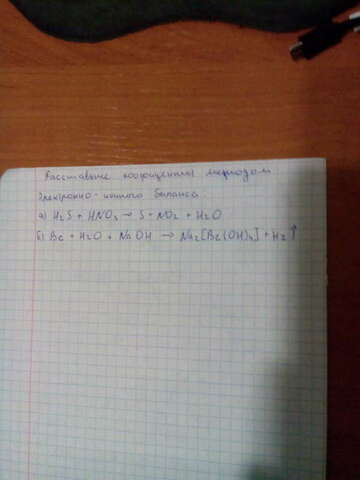 Расставьте коэффициенты методом
электронно-ионного баланса.
а) H₂S + HNO₃ → S + NO₂ + H₂O
б) Be + H₂O + NaOH → Na₂[Be(OH)₄] + H₂↑